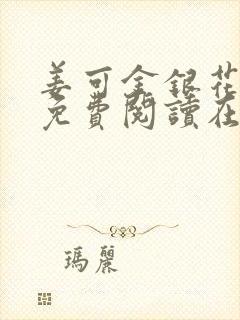 姜可金銀花
免費閱讀在
瑪麗